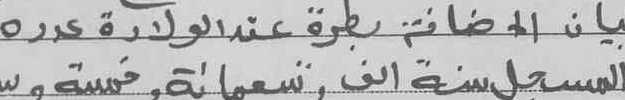 بيان الإضافة بطرة عقد الولادة عدده
المسجل سنة الف وتسعمائة وخمسة و